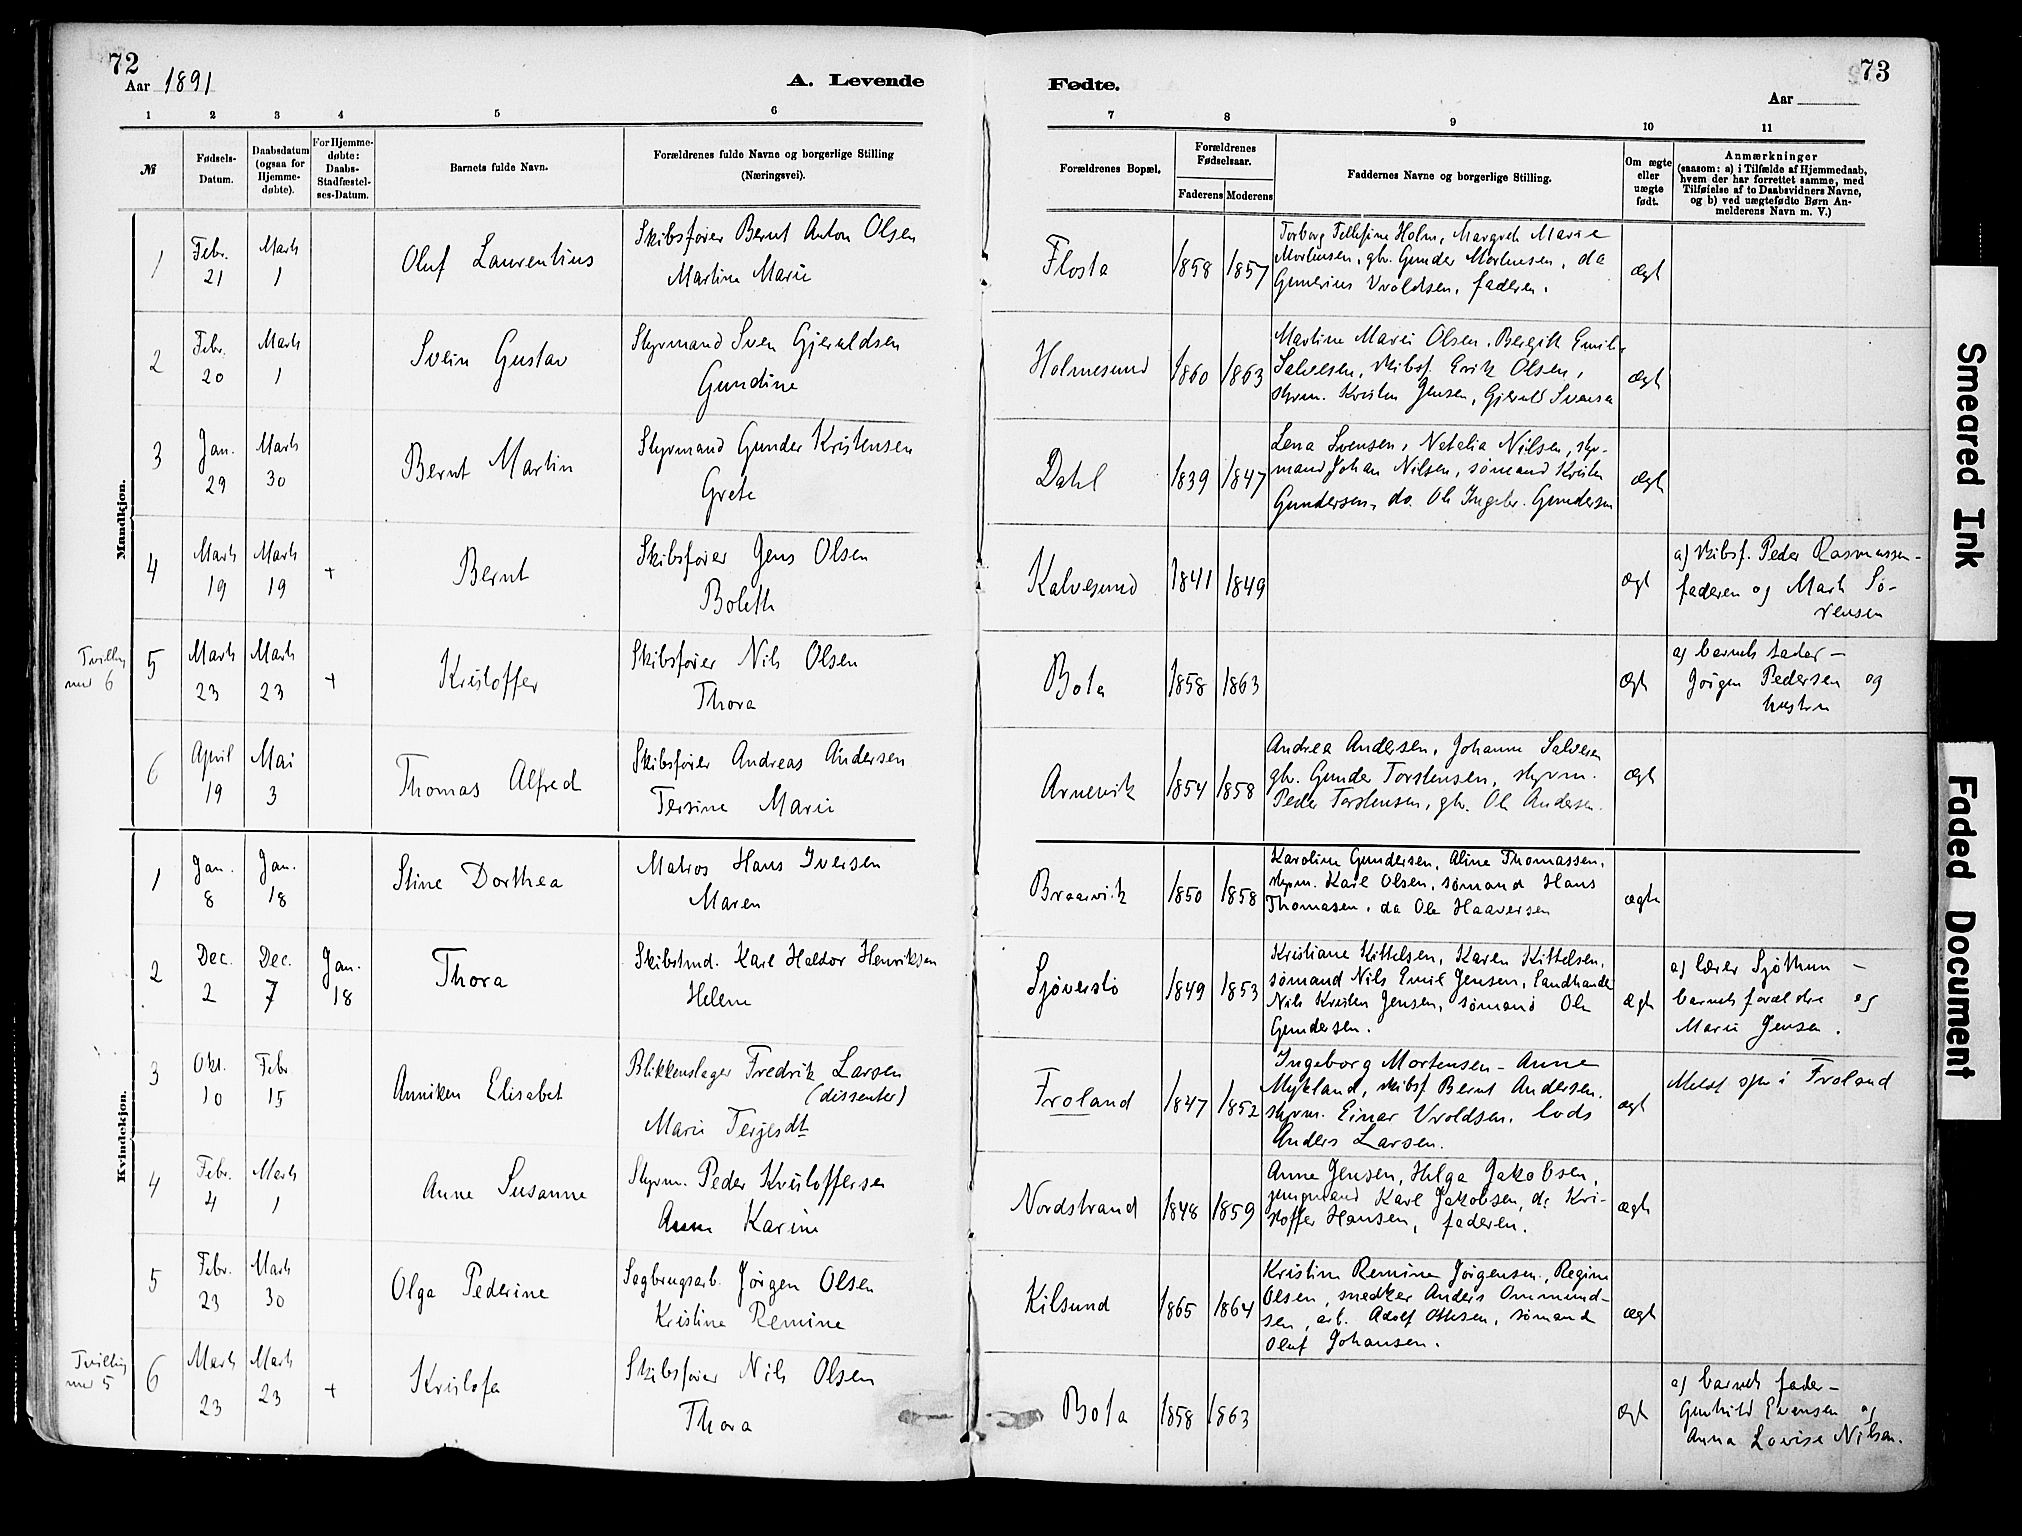 72
Aar 1891
A. Levende
1 2 3 4 5 6
№
Fødsels-
Datum.
Daabsdatum
(ogsaa for
Hjemme-
døbte).
For Hjemme-
døbte:
Daabs-
Stadfæstel-
ses-Datum.
Barnets fulde Navn.
Forældrenes fulde Navne og borgerlige Stilling
(Næringsvei).
Mandkjøn.
1 Febr. 21 Marts 1 Oluf Laurentius
Skibsfører Bernt Anton Olsen
Martine Marie
2 Febr. 20 Marts 1 Svein Gustav
Styrmand Sven Gjeruldsen
Gundine
3 Jan. 29 Marts 30 Bernt Martin
Styrmand Gunder Kristensen
Grete
4 Marts 19 Marts 19 + Bernt
Skibsfører Jens Olsen
Boleth
Tvilling
med 6
5 Marts 23 Marts 23 + Kristoffer
Skibsfører Nils Olsen
Thora
6 April 19 Mai 3 Thomas Alfred
Skibsfører Andreas Andersen
Tersine Marie
Kvindekjøn.
1 Jan. 8 Jan. 18 Stine Dorthea
Matros Hans Iversen
Maren
2 Dec. 2 Dec. 7 Jan. 18 Thora
Skibstmd. Karl Haldor Henriksen
Helene
3 Okt. 10 Febr 15 Anniken Elisabet
Blikkenslager Fredrik Larsen
(dissenter)
Marie Terjesdt
4 Febr. 4 Marts 1 Anne Susanne
Styrm. Peder Kristoffersen
Anne Karine
5 Febr. 23 Marts 30 Olga Pederine
Sagbrugsarb. Jörgen Olsen
Kristine Remine
Tvilling
med 5
6 Marts 23 Marts 23 + Kristofa
Skibsfører Nils Olsen
Thora
73
Fødte.
Aar
7 8 9 10 11
Forældrenes Bopæl.
Forældrenes
Fødselsaar.
Faderens Moderens
Faddernes Navne og borgerlige Stilling.
Om ægte
eller
uægte
født.
Anmærkninger
(saasom: a) i Tilfælde af Hjemmedaab,
hvem der har forrettet samme, med
Tilføielse af to Daabsvidners Navne,
og b) ved uægtefødte Børn An-
melderens Navn m. V.)
Flosta 1858 1857
Torborg Tellefine Holm, Margreth Marie
Mortensen, gbr. Gunder Mortensen, do
Gunerius Uvoldsen, faderen.
ægt
Holmesund 1860 1863
Martine Marie Olsen, Bergith Emilie
Salvesen, skibsf. Erik Olsen,
styrm. Kristen Jensen, Gjeruld Svensen
ægt
Dahl 1839 1847
Lena Svensen, Natalia Nilsen, styr-
mand Johan Nilsen, sømand Kristen
Gundersen, do. Ole Ingebr. Gundersen
ægt
Kalvesund 1841 1849 ægt
a) skibsf. Peder Rasmussen -
faderen og Marth Sø-
rensen
Bota 1858 1863 ægt
a) barnets fader -
Jörgen Pedersen og
hustru
Arnevik 1854 1858
Andrea Andersen, Johanne Salvesen
gbr. Gunder Torstensen, styrm.
Peder Torstensen, gbr. Ole Andersen.
ægt
Braarvik 1850 1858
Karoline Gundersen, Aline Thomassen,
styrm. Karl Olsen, sømand Hans
Thomasen, do Ole Haaversen
ægte
Sjøverstø 1849 1853
Kristiane Kittelsen, Karen Kittelsen,
sømand Nils Emil Jensen, Landhandler
Nils Kristen Jensen, sømand Ole
Gundersen.
ægt
a) lærer Sjøthun -
barnets forældre og
Marie Jensen.
Froland 1847 1852
Ingeborg Mortensen - Anne
Mykland, skibsf. Bernt Andersen,
styrm. Einar Uvoldsen, lods
Anders Larsen.
ægt
Meldt spr i Froland
Nordstrand 1848 1859
Anne Jensen, Helga Jakobsen,
jungmand Karl Jakobsen, do Kri-
stoffer Hansen, faderen.
ægt
Kilsund 1865 1864
Kristine Remine Jörgensen, Regine
Olsen, snedker Anders Ommund-
sen, arb. Adolf Ottesen, sømand
Oluf Johansen.
ægt
Bota 1858 1863 ægt
a) barnets fader -
Gunhild Evensen og
Anna Lovise Nilsen.
Smeared Ink
Faded Document